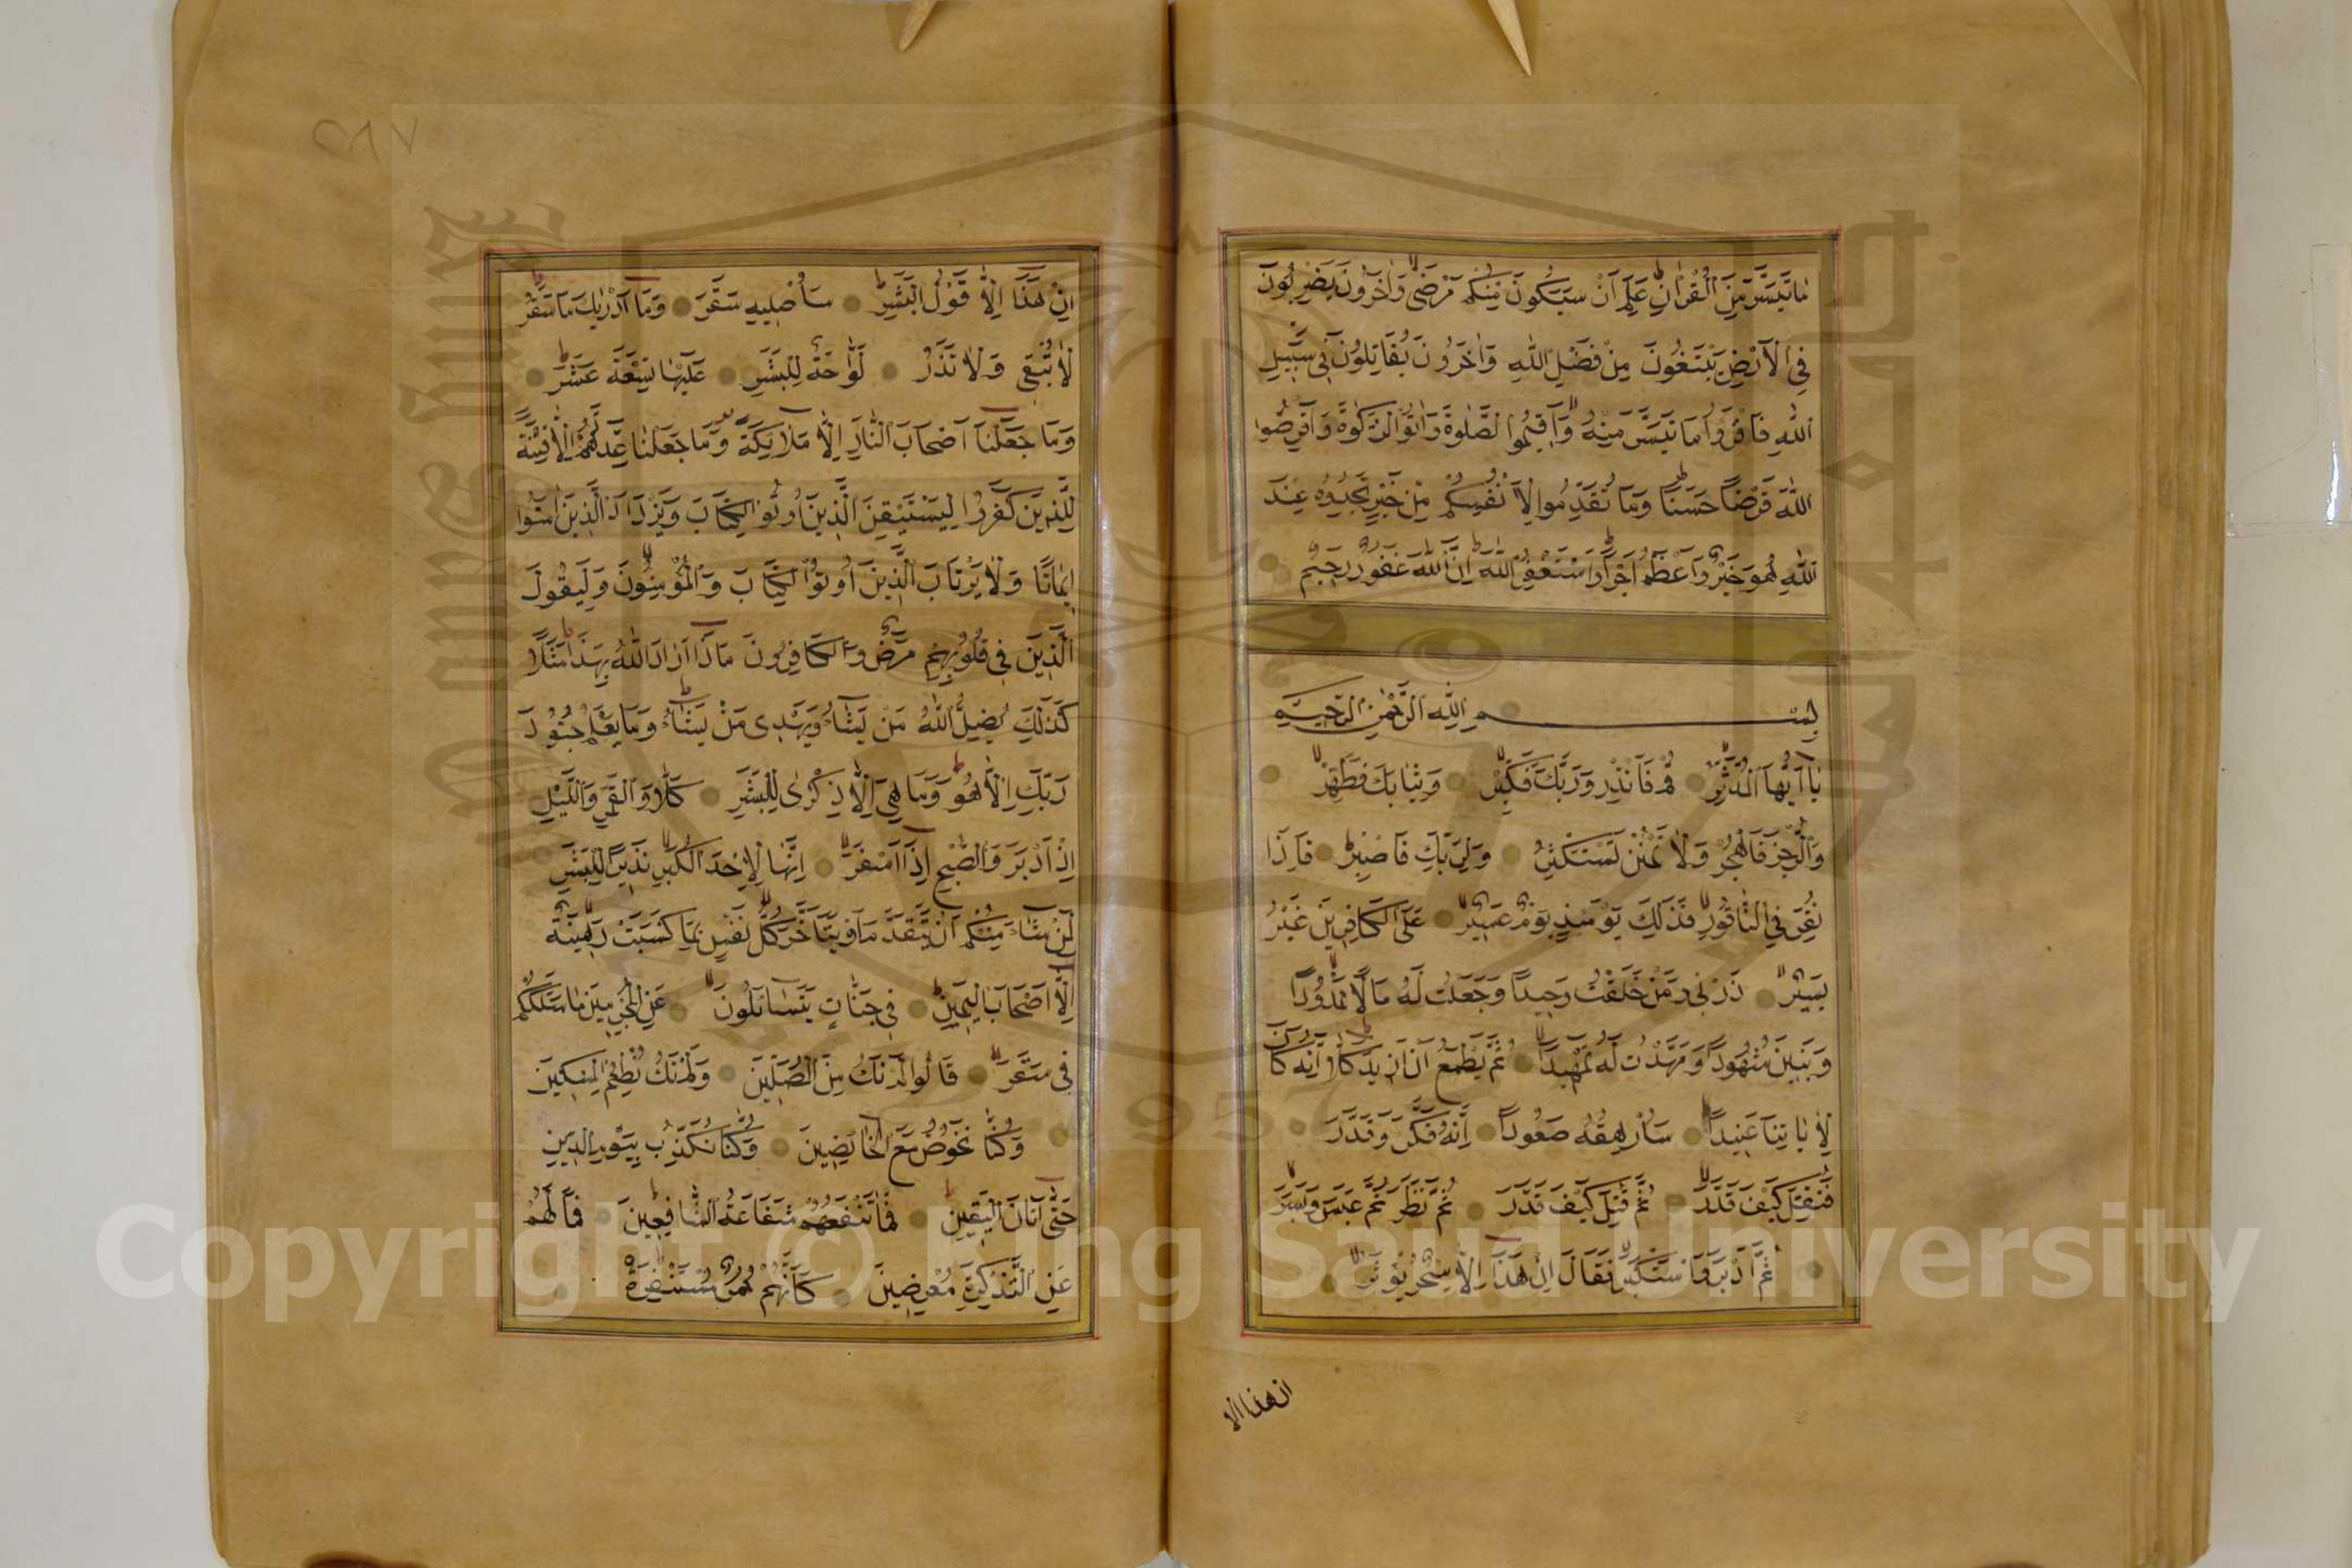 مَا تَيَسَّرَ مِنَ الْقُرْاٰنِ عَلِمَ اَنْ سَيَكُونُ مِنْكُمْ مَرْضٰى وَاٰخَرُونَ يَضْرِبُونَ
فِي الْاَرْضِ يَبْتَغُونَ مِنْ فَضْلِ اللّٰهِ وَاٰخَرُونَ يُقَاتِلُونَ فِي سَبِيلِ
اللّٰهِ فَاقْرَؤُا مَا تَيَسَّرَ مِنْهُ وَاَقِيمُوا الصَّلٰوةَ وَاٰتُوا الزَّكٰوةَ وَاَقْرِضُوا
اللّٰهَ قَرْضًا حَسَنًا وَمَا تُقَدِّمُوا لِاَنْفُسِكُمْ مِنْ خَيْرٍ تَجِدُوهُ عِنْدَ
اللّٰهِ هُوَ خَيْرًا وَاَعْظَمَ اَجْرًا وَاسْتَغْفِرُوا اللّٰهَ اِنَّ اللّٰهَ غَفُورٌ رَحِيمٌ
بِسْمِ اللّٰهِ الرَّحْمٰنِ الرَّحِيمِ
يَا اَيُّهَا الْمُدَّثِّرُ قُمْ فَاَنْذِرْ وَرَبَّكَ فَكَبِّرْ وَثِيَابَكَ فَطَهِّرْ
وَالرُّجْزَ فَاهْجُرْ وَلَا تَمْنُنْ تَسْتَكْثِرُ وَلِرَبِّكَ فَاصْبِرْ فَاِذَا
نُقِرَ فِي النَّاقُورِ فَذٰلِكَ يَوْمَئِذٍ يَوْمٌ عَسِيرٌ عَلَى الْكَافِرِينَ غَيْرُ
يَسِيرٍ ذَرْنِي وَمَنْ خَلَقْتُ وَحِيدًا وَجَعَلْتُ لَهُ مَالًا مَمْدُودًا
وَبَنِينَ شُهُودًا وَمَهَّدْتُ لَهُ تَمْهِيدًا ثُمَّ يَطْمَعُ اَنْ اَزِيدَ كَلَّا اِنَّهُ كَانَ
لِاٰيَاتِنَا عَنِيدًا سَاُرْهِقُهُ صَعُودًا اِنَّهُ فَكَّرَ وَقَدَّرَ
فَقُتِلَ كَيْفَ قَدَّرَ ثُمَّ قُتِلَ كَيْفَ قَدَّرَ ثُمَّ نَظَرَ ثُمَّ عَبَسَ وَبَسَرَ
ثُمَّ اَدْبَرَ وَاسْتَكْبَرَ فَقَالَ اِنْ هٰذَا اِلَّا سِحْرٌ يُؤْثَرُ
ان هذا الا
٥٨٧
اِنْ هٰذَا اِلَّا قَوْلُ الْبَشَرِ سَاُصْلِيهِ سَقَرَ وَمَا اَدْرٰيكَ مَا سَقَرُ
لَا تُبْقِي وَلَا تَذَرُ لَوَّاحَةٌ لِلْبَشَرِ عَلَيْهَا تِسْعَةَ عَشَرَ
وَمَا جَعَلْنَا اَصْحَابَ النَّارِ اِلَّا مَلَائِكَةً وَمَا جَعَلْنَا عِدَّتَهُمْ اِلَّا فِتْنَةً
لِلَّذِينَ كَفَرُوا لِيَسْتَيْقِنَ الَّذِينَ اُوتُوا الْكِتَابَ وَيَزْدَادَ الَّذِينَ اٰمَنُوا
اِيمَانًا وَلَا يَرْتَابَ الَّذِينَ اُوتُوا الْكِتَابَ وَالْمُؤْمِنُونَ وَلِيَقُولَ
الَّذِينَ فِي قُلُوبِهِمْ مَرَضٌ وَالْكَافِرُونَ مَاذَا اَرَادَ اللّٰهُ بِهٰذَا مَثَلًا
كَذٰلِكَ يُضِلُّ اللّٰهُ مَنْ يَشَاءُ وَيَهْدِي مَنْ يَشَاءُ وَمَا يَعْلَمُ جُنُودَ
رَبِّكَ اِلَّا هُوَ وَمَا هِيَ اِلَّا ذِكْرٰى لِلْبَشَرِ كَلَّا وَالْقَمَرِ وَاللَّيْلِ
اِذْ اَدْبَرَ وَالصُّبْحِ اِذَا اَسْفَرَ اِنَّهَا لَاِحْدَى الْكُبَرِ نَذِيرًا لِلْبَشَرِ
لِمَنْ شَاءَ مِنْكُمْ اَنْ يَتَقَدَّمَ اَوْ يَتَاَخَّرَ كُلُّ نَفْسٍ بِمَا كَسَبَتْ رَهِينَةٌ
اِلَّا اَصْحَابَ الْيَمِينِ فِي جَنَّاتٍ يَتَسَائَلُونَ عَنِ الْمُجْرِمِينَ مَا سَلَكَكُمْ
فِي سَقَرَ قَالُوا لَمْ نَكُ مِنَ الْمُصَلِّينَ وَلَمْ نَكُ نُطْعِمُ الْمِسْكِينَ
وَكُنَّا نَخُوضُ مَعَ الْخَائِضِينَ وَكُنَّا نُكَذِّبُ بِيَوْمِ الدِّينِ
حَتّٰى اَتَانَا الْيَقِينُ فَمَا تَنْفَعُهُمْ شَفَاعَةُ الشَّافِعِينَ فَمَا لَهُمْ
عَنِ التَّذْكِرَةِ مُعْرِضِينَ كَاَنَّهُمْ حُمُرٌ مُسْتَنْفِرَةٌ
Copyright © King Saud University